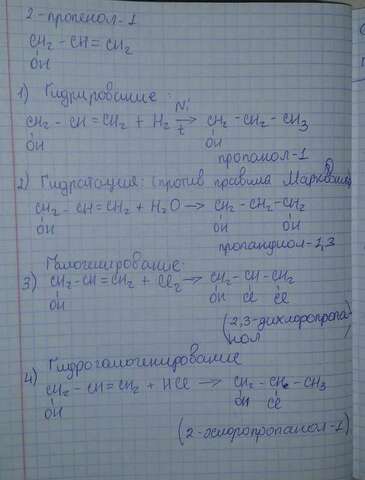 2-пропенол-1
CH2 - CH = CH2
OH
1) Гидрирование:
CH2 - CH = CH2 + H2 Ni t → CH2 - CH2 - CH3
OH OH
пропанол-1
2) Гидратация: (против правила
CH2 - CH = CH2 + H2O → CH2 - CH2 - CH2
OH OH OH
пропандиол-1,3
Галогенирование:
3) CH2 - CH = CH2 + Cl2 → CH2 - CH - CH2
OH OH Cl Cl
(2,3-дихлоропропа
нол)
4) Гидрогалогенирование
CH2 - CH = CH2 + HCl → CH2 - CH - CH3
OH OH Cl
(2-хлоропропанол-1)